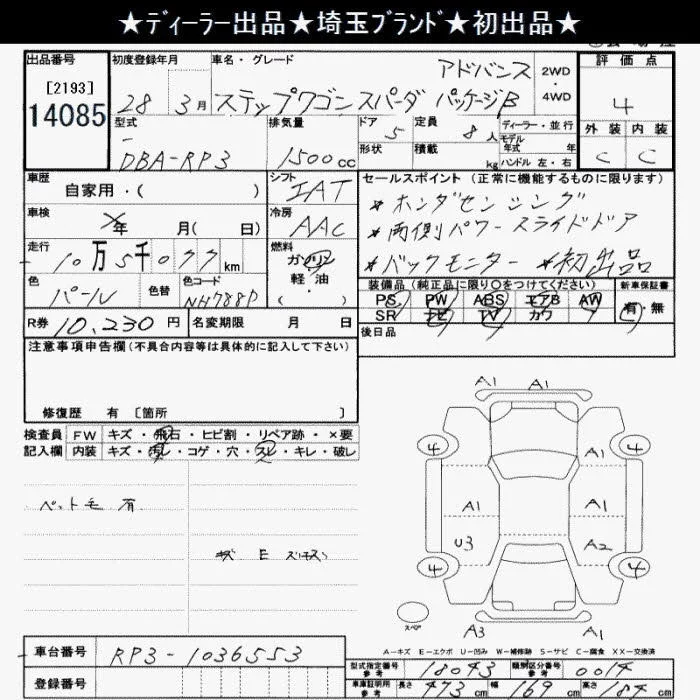 ★ディーラー出品★埼玉ブランド★初出品★
出品番号
[2193]
14085
初度登録年月
28 3月
車名・グレード
アドバンス
ステップワゴンスパーダ パッケージB
2WD
・
4WD
評価点
4
外装 内装
C C
型式
DBA-RP3
排気量
1500cc
ドア 5
形状
定員 8人
積載 kg
ディーラー・並行
モデル年式 年
ハンドル 左・右
車歴
自家用・( )
シフト
IAT
車検
年 月( 日)
冷房
AAC
走行
10万5千077km
燃料
ガソリン
軽油
・( )
色
パール
色替
色コード
NH788P
R券 10,230円
名変期限 月 日
セールスポイント (正常に機能するものに限ります)
*ホンダセンシング
*両側パワースライドドア
*バックモニター *初出品
装備品(純正品に限り○をつけてください)
PS PW ABS エアB AW
SR ナビ TV カワ
新車保証書
有・無
後日品
注意事項申告欄(不具合内容等は具体的に記入して下さい)
修復歴 有 [箇所 ]
検査員
記入欄
FW キズ・飛石・ヒビ割・リペア跡・×要
内装 キズ・汚レ・コゲ・穴・スレ・キレ・破レ
ペット毛 有
A1 A1
4 4
A1 A1 A1
U3 A2
4 4
スペア
A3 A1
A-キズ E-エクボ U-凹み W-補修跡 S-サビ C-腐食 XX-交換済
車台番号 RP3-1036553
登録番号
型式指定番号
参考
18043
類別区分番号
参考
0014
車庫証明用
参考
長さ 473cm 幅 169cm 高さ 184cm